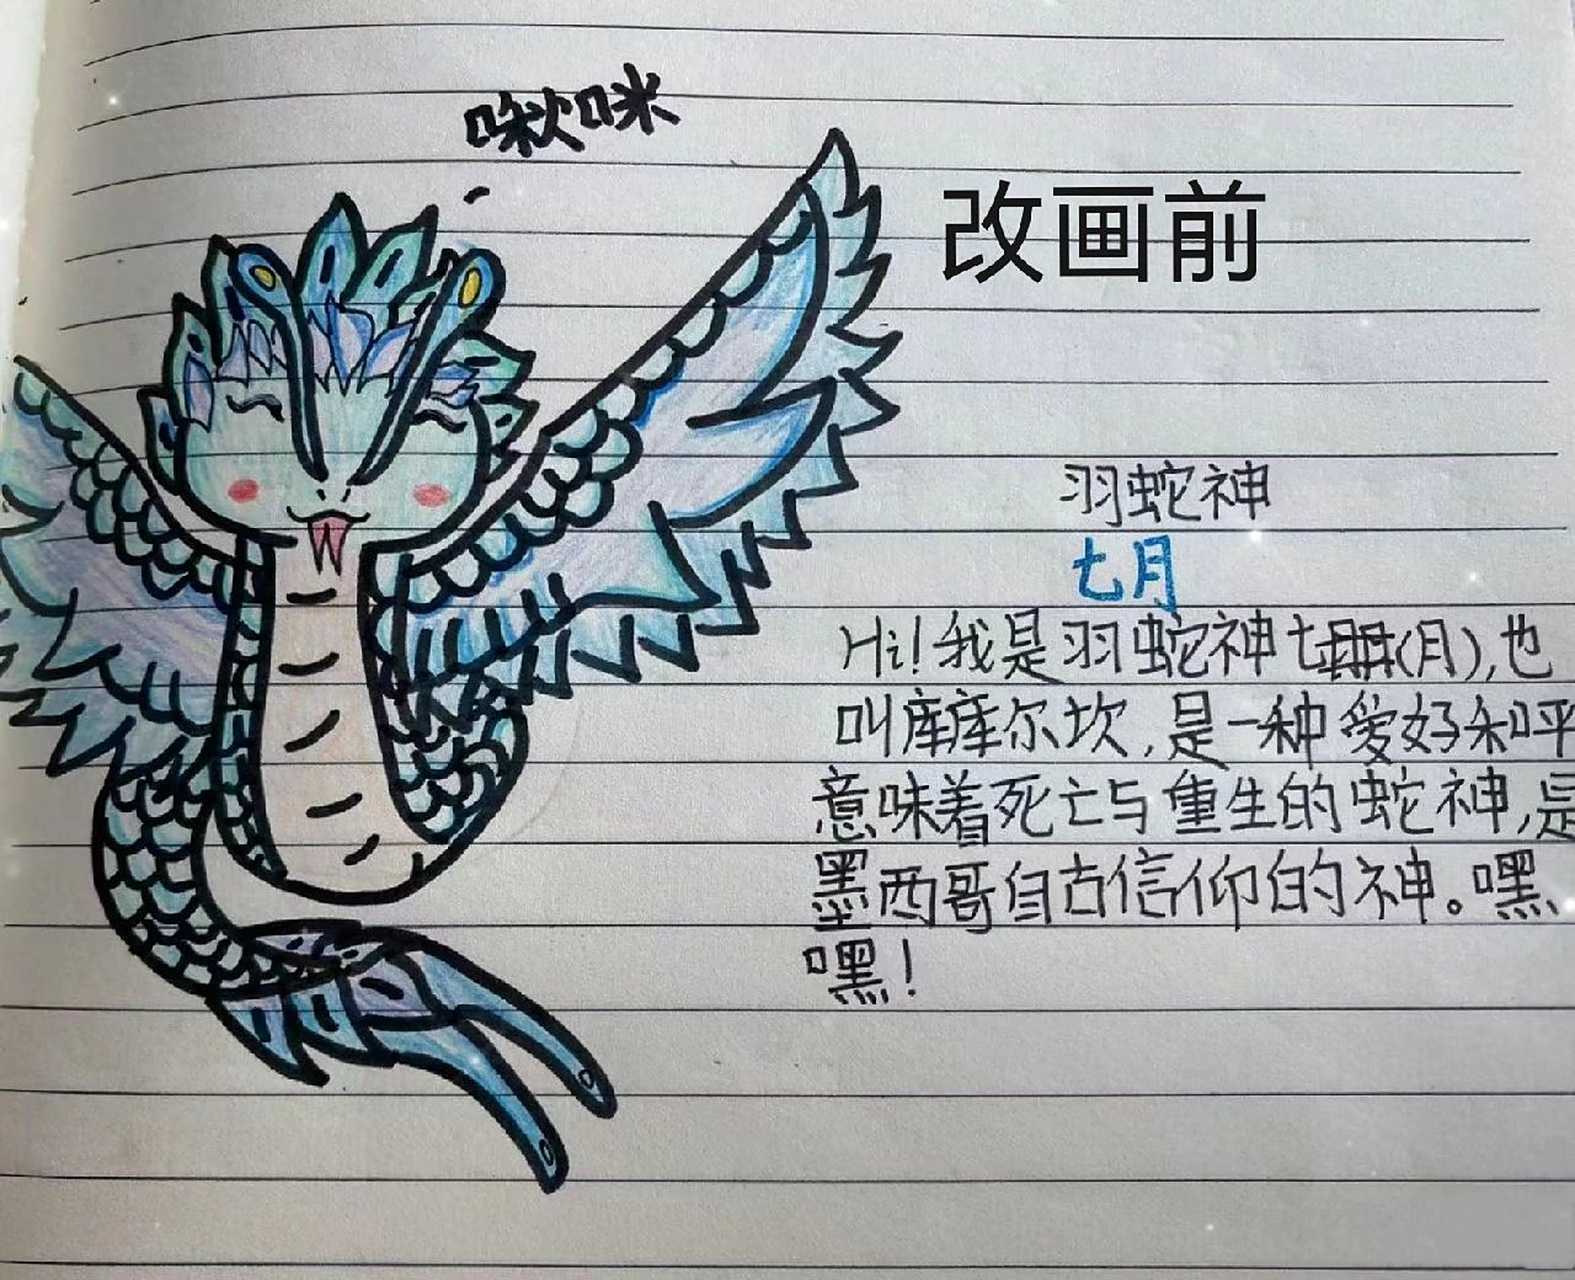 啾咪
改画前
羽蛇神
七月
Hi!我是羽蛇神七(月),也
叫库库尔坎,是一种爱好和平
意味着死亡与重生的蛇神,是
墨西哥自古信仰的神。嘿
嘿!